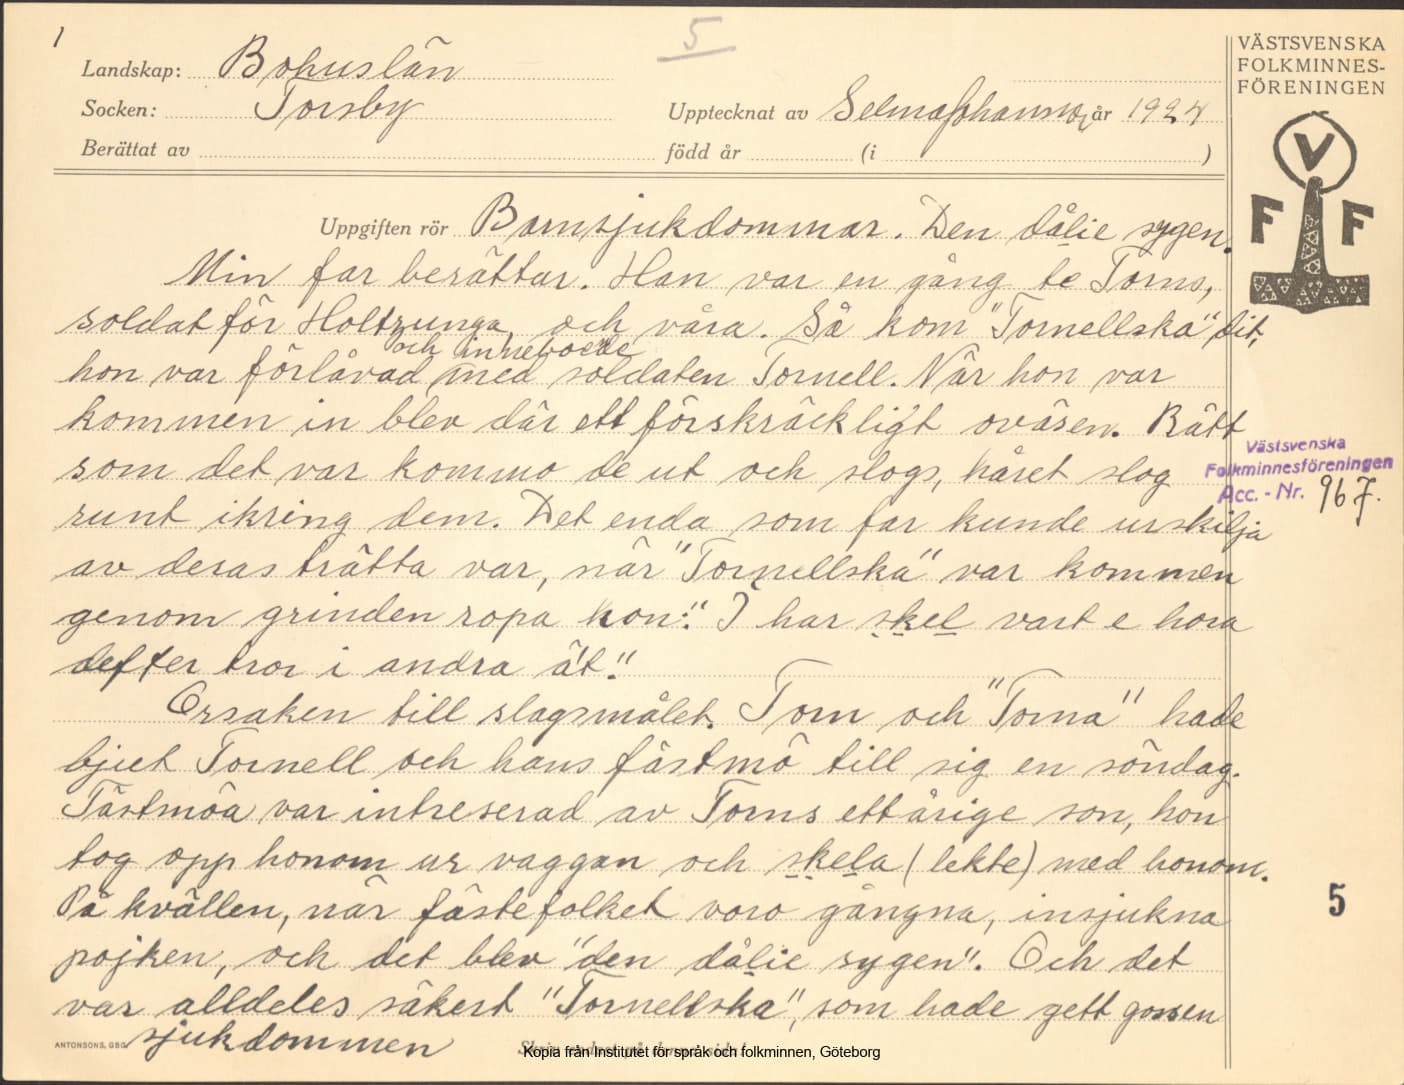 1
5
Landskap: Bohuslän
Socken: Torsby
Upptecknat av Selma Johansson år 1924
Berättat av
född år (i )
VÄSTSVENSKA
FOLKMINNES-
FÖRENINGEN
V
F F
Uppgiften rör Barnsjukdommar. Den dålie sygen.
Min far berättar. Han var en gång te Torns,
soldat för Holtzunga, och våra. Så kom "Tornellska" dit,
och inneboede
hon var förlåvad med soldaten Tornell. När hon var
kommen in blev där ett förskräckligt oväsen. Rätt
som det var kommo de ut och slogs, håret slog
runt ikring dem. Det enda som far kunde urskilja
av deras trätta var, när "Tornellska" var kommen
genom grinden ropa hon: "I har skel vart e hora
defter tror i andra ä't."
Orsaken till slagsmålet. Torn och "Torna" hade
bjuet Tornell och hans fästmö till sig en söndag.
Fästmöa var intreserad av Torns ettårige son, hon
tog opp honom ur vaggan och skela (lekte) med honom.
På kvällen, när fästefolket voro gångna, insjukna
pojken, och det blev "den dålie sygen". Och det
var alldeles säkert "Tornellska", som hade gett gossen
sjukdommen
Västsvenska
Folkminnesföreningen
Acc. - Nr. 967.
5
ANTONSONS, GBG
Kopia från Institutet för språk och folkminnen, Göteborg